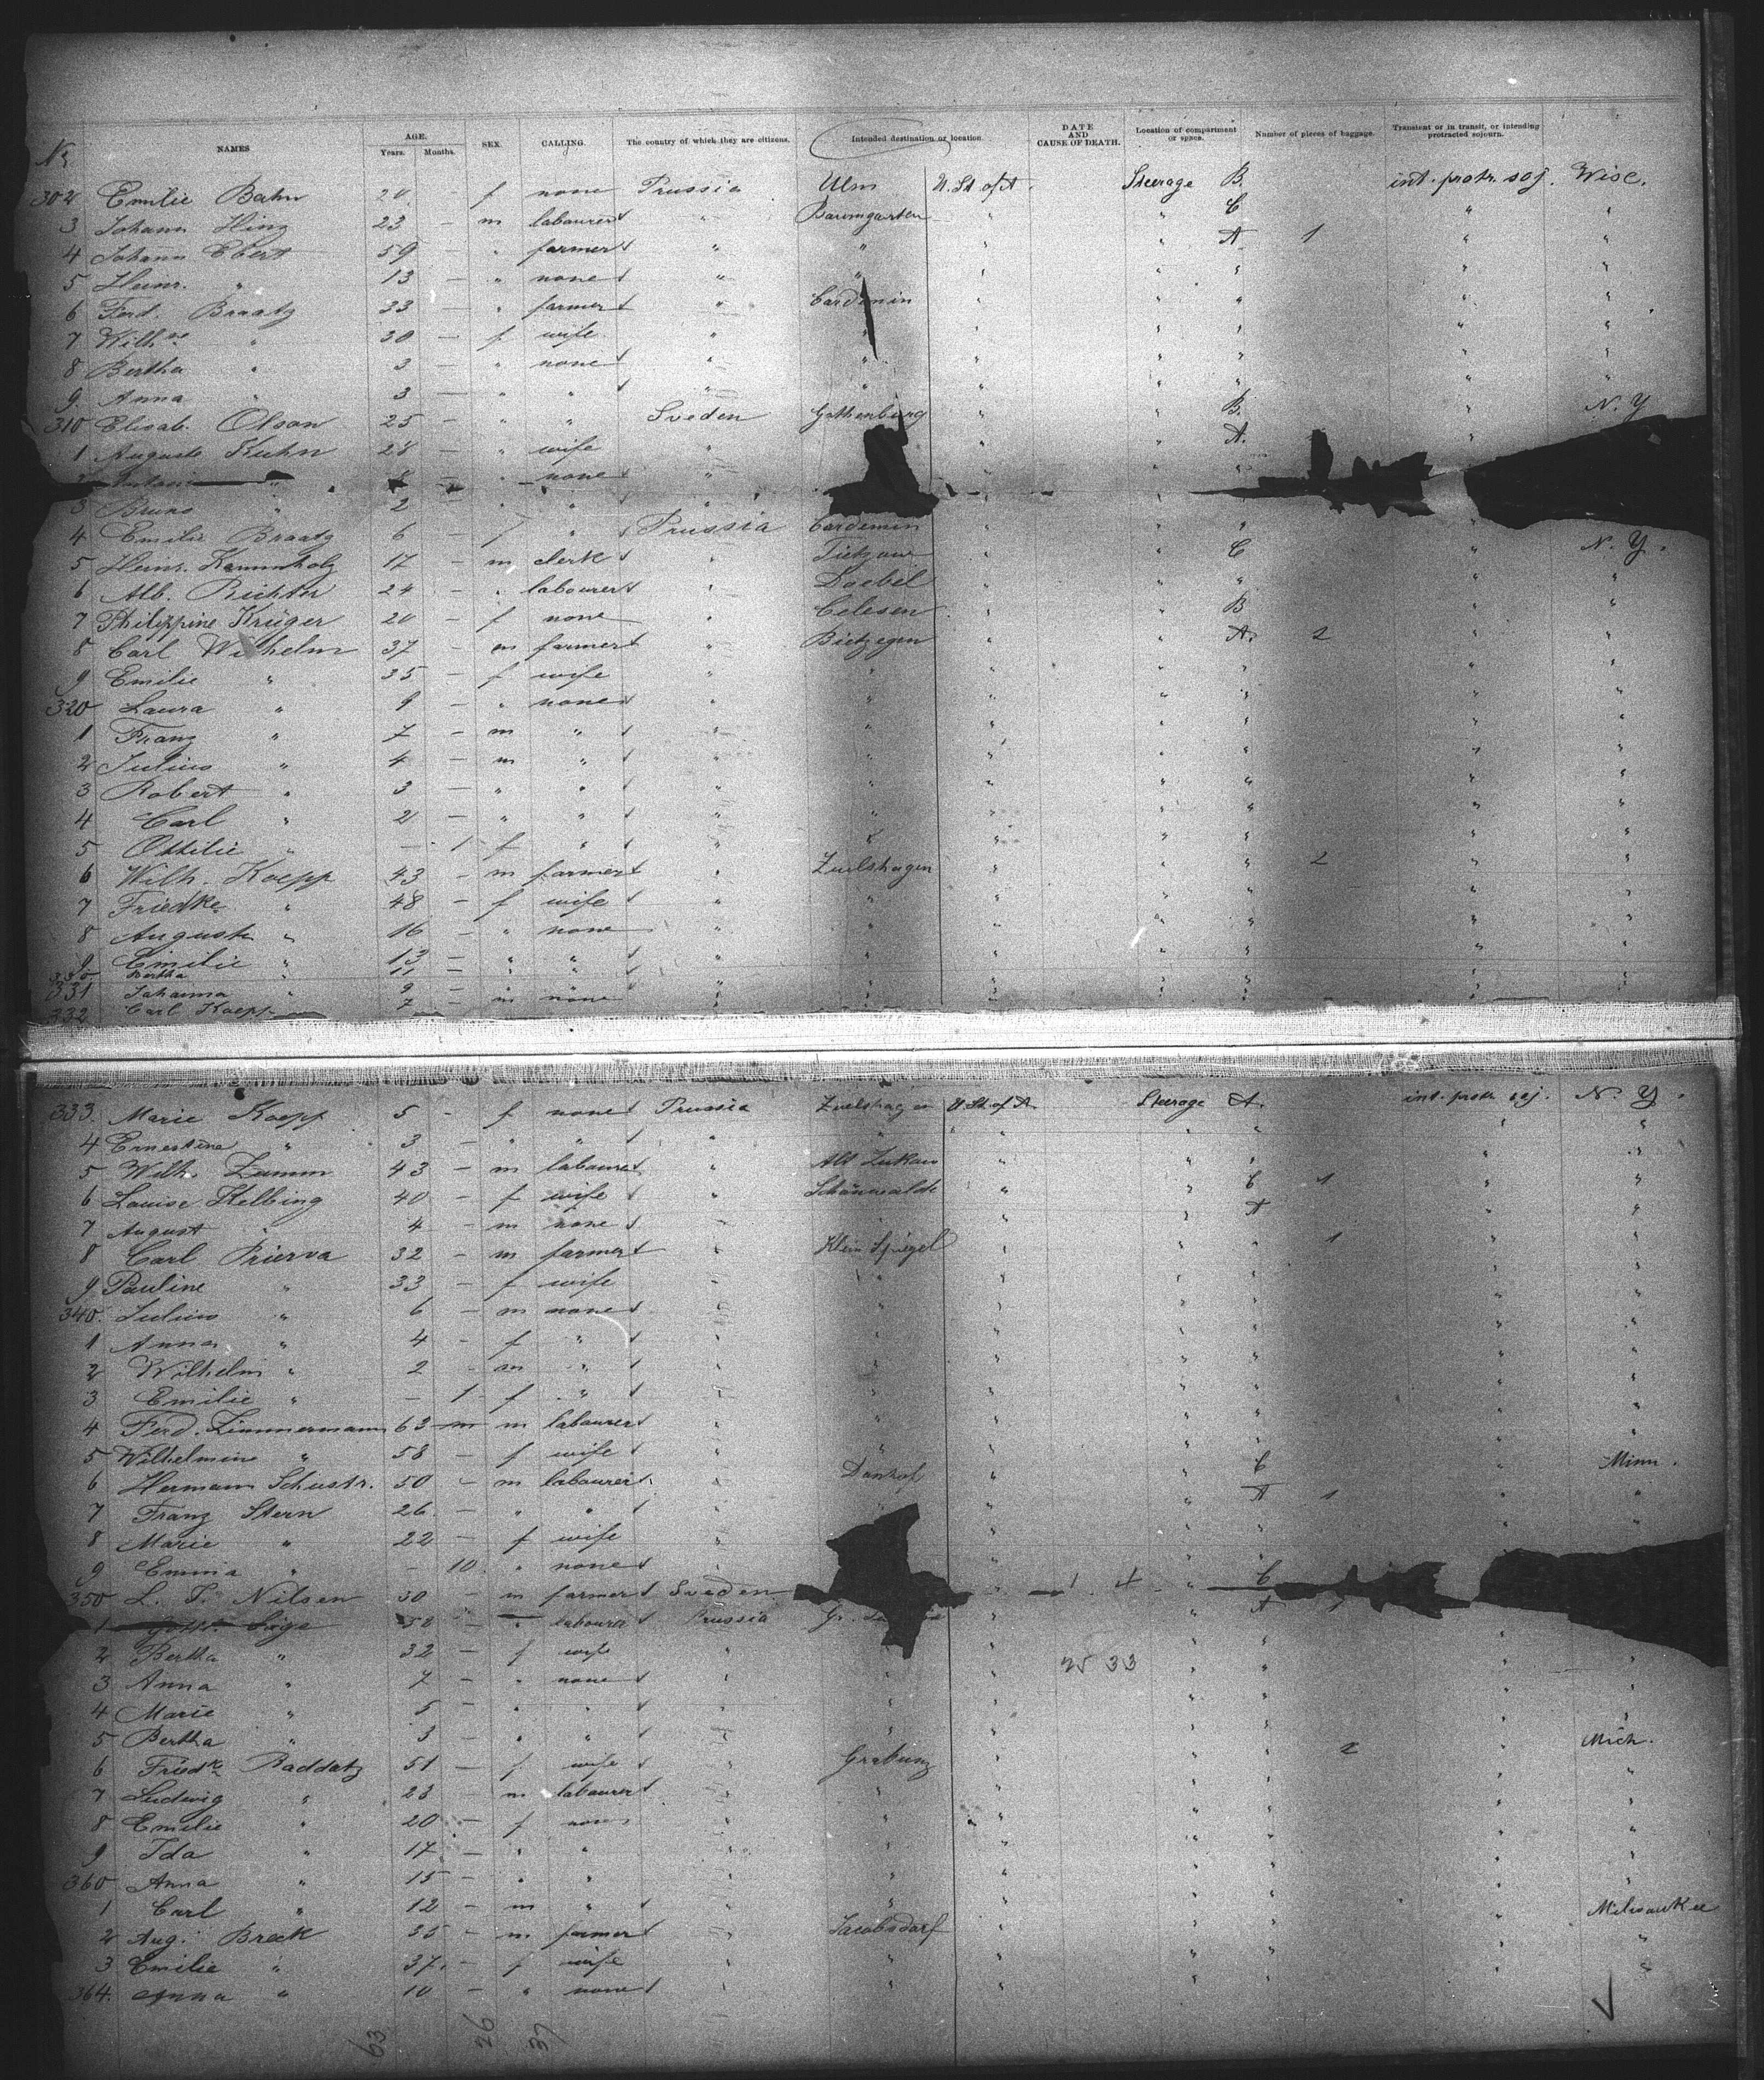 No NAMES AGE. Years. Months. SEX. CALLING. The country of which they are citizens. Intended destination or location. DATE AND CAUSE OF DEATH. Location of compartment or space. Number of pieces of baggage. Transient or in transit, or intending protracted sojourn.
302 Emilie Bahn 20 - f none Prussia Ulm U. St. of A. Steerage B. int. protr. soj. Wisc.
3 Johann Hinz 23 - m labourer " Baumgarten " " C " "
4 Johann Ebert 59 - " farmer " " " " A 1 " "
5 Heinr. " 13 - " none " " " " " " "
6 Ferd. Braatz 33 - " farmer " Cardemin " " " " "
7 Wilhne " 30 - f wife " " " " " " "
8 Bertha " 3 - " none " " " " " " "
9 Anna " 3 - " " " " " " " " "
310 Elisab. Olson 25 - " " Sveden Gothenburg " " B. " N. Y
1 Auguste Kuhn 28 - " wife " " " A. "
2 " - " none "
3 Bruno " 2 - " " "
4 Emilie Braatz 6 - f " Prussia Cardemin " " " "
5 Heinr. Kammholz 17 - m clerk " Tietzow " " C " N. Y.
6 Alb. Richter 24 - " labourer " Doebel " " " " "
7 Philippine Krüger 20 - f none " Celesen " " B " "
8 Carl Wilhelm 37 - m farmer " Bietzegen " " A. 2 " "
9 Emilie " 35 - f wife " " " " " " "
320 Laura " 9 - " none " " " " " " "
1 Franz " 7 - m " " " " " " " "
2 Julius " 4 - m " " " " " " " "
3 Robert " 3 - " " " " " " " " "
4 Carl " 2 - " " " " " " " " "
5 Ottilie " - 1 f " " " " " " " "
6 Wilh. Koepp 43 - m farmer " Zuelshagen " " " 2 " "
7 Friedke " 48 - f wife " " " " " " "
8 Auguste " 16 - " none " " " " " " "
9 Emilie " 13 - " " " " " " " " "
330 Bertha " 11 - " " " " " " " "
331 Johanna " 9 - " " " " " " " "
332 Carl Koepp 7 - m none " " " " " " "
333. Marie Koepp 5 - f none Prussia Zuelshagen U. St. of A. Steerage A. int. protr. soj. N. Y.
4 Ernestine " 3 - " " " " " " " " "
5 Wilh. Zumm 43 - m labourer " Alt Zukow " " " " "
6 Louise Helbing 40 - f wife " Schönwalde " " C 1 " "
7 August " 4 - m none " " " " A " "
8 Carl Prierva 32 - m farmer " Klein Spiegel " " " 1 " "
9 Pauline " 33 - f wife " " " " " " "
340. Julius " 6 - m none " " " " " " "
1 Anna " 4 - f " " " " " " " "
2 Wilhelm " 2 - m " " " " " " " "
3 Emilie " - 1 f " " " " " " " "
4 Ferd. Zimmermann 63 m labourer " " " " " " "
5 Wilhelmine " 58 - f wife " " " " " " "
6 Hermann Schustr. 50 - m labourer " Danhof " " C " Minn.
7 Franz Stern 26 - " " " " " A 1 " "
8 Marie " 22 - f wife " " " " " "
9 Emma " - 10 " none " " " "
350 L. P. Nilsen 30 - m farmer Sveden " " C
1 Gottl. 50 - " labourer Prussia Gr. " " A 1
2 Bertha " 32 - f wife " " " " "
3 Anna " 7 - " none " " " " " " "
25 33
4 Marie " 5 - " " " " " " " " "
5 Bertha " 3 - " " " " " " " " "
6 Friedke Raddatz 51 - f wife " Grabunz " " " 2 " Mich.
7 Ludwig " 23 - m labourer " " " " " " "
8 Emilie " 20 - f none " " " " " " "
9 Ida " 17 - " " " " " " " " "
360 Anna " 15 - " " " " " " " " "
1 Carl " 12 - m " " " " " " " "
2 Aug. Breek 35 - m farmer " Jacobsdorf " " " " Milwaukee
3 Emilie " 37. - f wife " " " " " " "
364. Anna " 10 - " none " " " " " " "
63 26 37